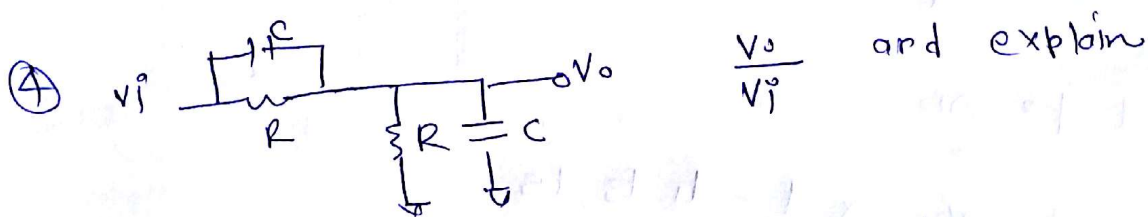 ④ vi C R R C Vo Vo/Vi and explain